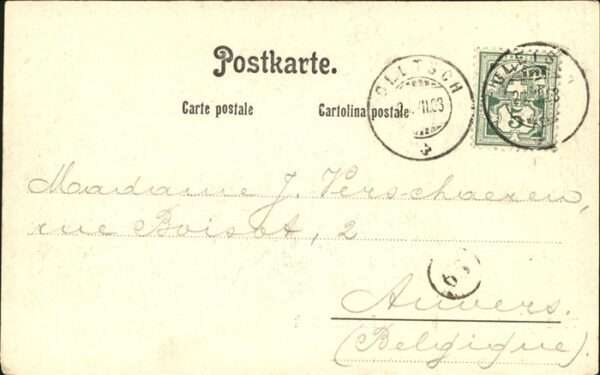 Postkarte.
Carte postale Cartolina postale
OLLTSCH
III.03
5
Madame J. Verschaeren,
rue Boisot, 2
69
Anvers.
(Belgique).